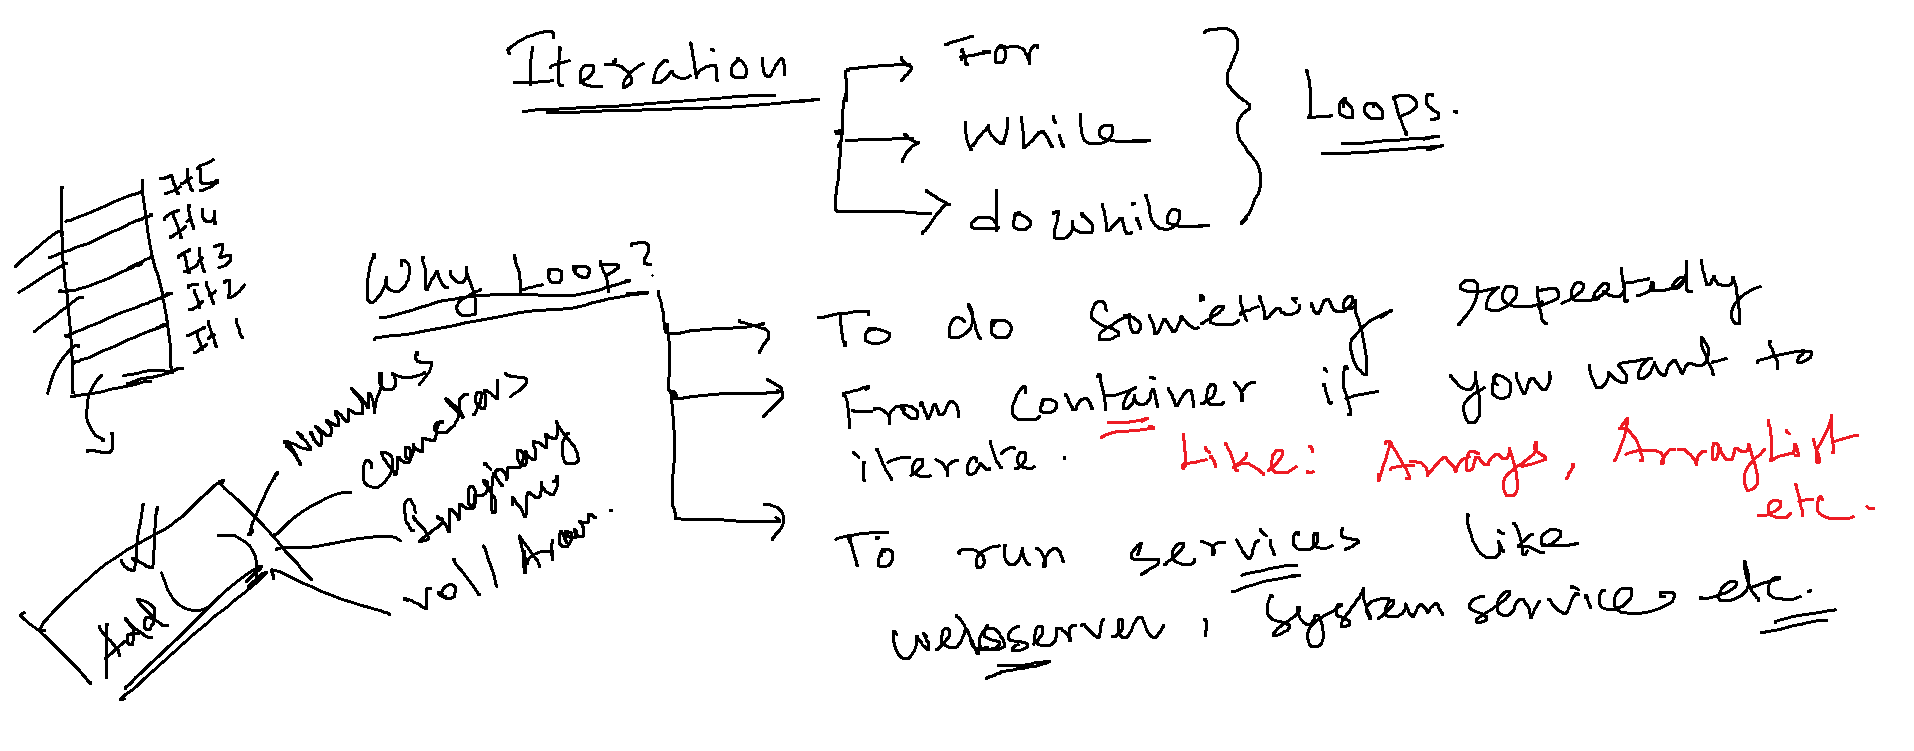 Iteration
For
While
do while
Loops.
It5
It4
It3
It2
It 1
Why Loop?
To do something repeatedly
From container if you want to
iterate. Like: Arrays, ArrayList
etc.
To run services like
webserver, system services etc.
Numbers
Imaginary
Add